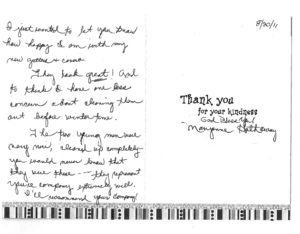 I just wanted to let you know
how happy I am with my
new gutters & covers.
They look great! And
to think I have one less
concern about cleaning them
out before winter time.
The two young men were
very nice, cleaned up completely
you would never know that
they were there -- they represent
you're company extremely well.
I'll recommend your company
8/30/11
Thank you
for your kindness
God Bless You!